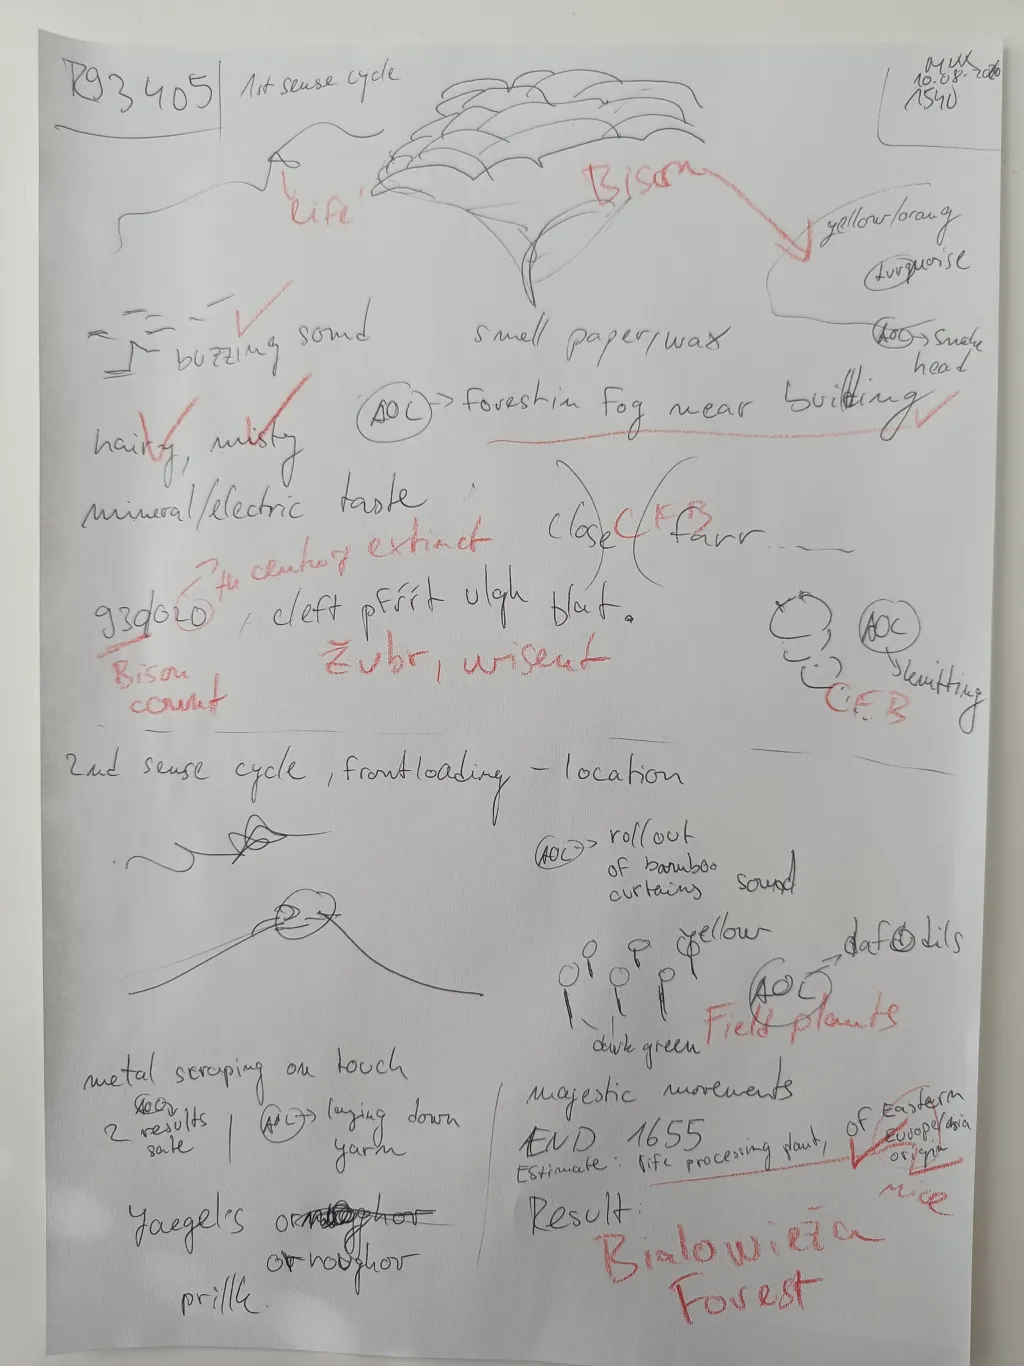 R93405
1st sense cycle
10.08.2026
1540
life
Bison
yellow/orang
turquoise
AOL → snake
head
buzzing sound
smell paper/wax
AOL → forest in fog near building
hairy, misty
mineral/electric taste
close
CFB
farr
th century extinct
930020, cleft pfřít ulgh blat.
Bison
count
Žubr, wisent
AOL
knitting
CFB
2nd sense cycle, frontloading - location
AOL → rollout
of bamboo
curtains sound
yellow
AOL → daffodils
Field plants
dark green
metal scraping on touch
2 results
sate
AOL → laying down
yarn
Yaegel's
or roughor
prillk.
majestic movements
END 1655
Estimate: life processing plant, of Eastern
europe/asia
origin
nice
Result:
Bialowieža
Forest